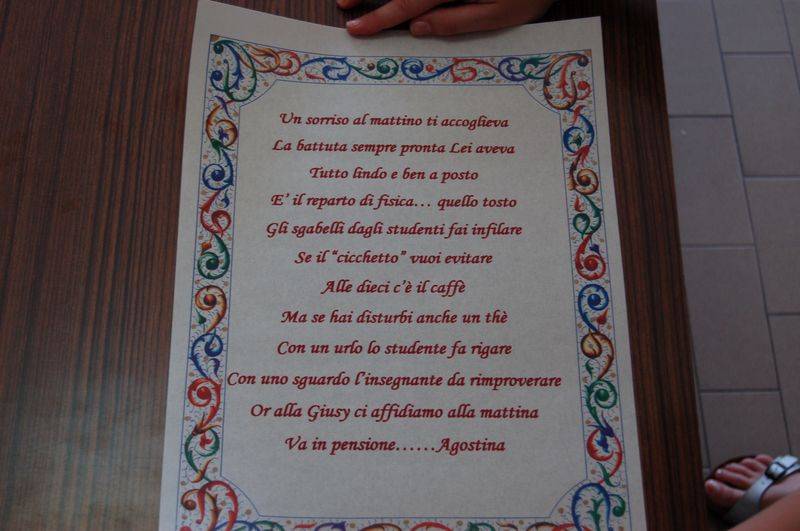 Un sorriso al mattino ti accoglieva
La battuta sempre pronta Lei aveva
Tutto lindo e ben a posto
E’ il reparto di fisica… quello tosto
Gli sgabelli dagli studenti fai infilare
Se il “cicchetto” vuoi evitare
Alle dieci c’è il caffè
Ma se hai disturbi anche un thè
Con un urlo lo studente fa rigare
Con uno sguardo l’insegnante da rimproverare
Or alla Giusy ci affidiamo alla mattina
Va in pensione……Agostina